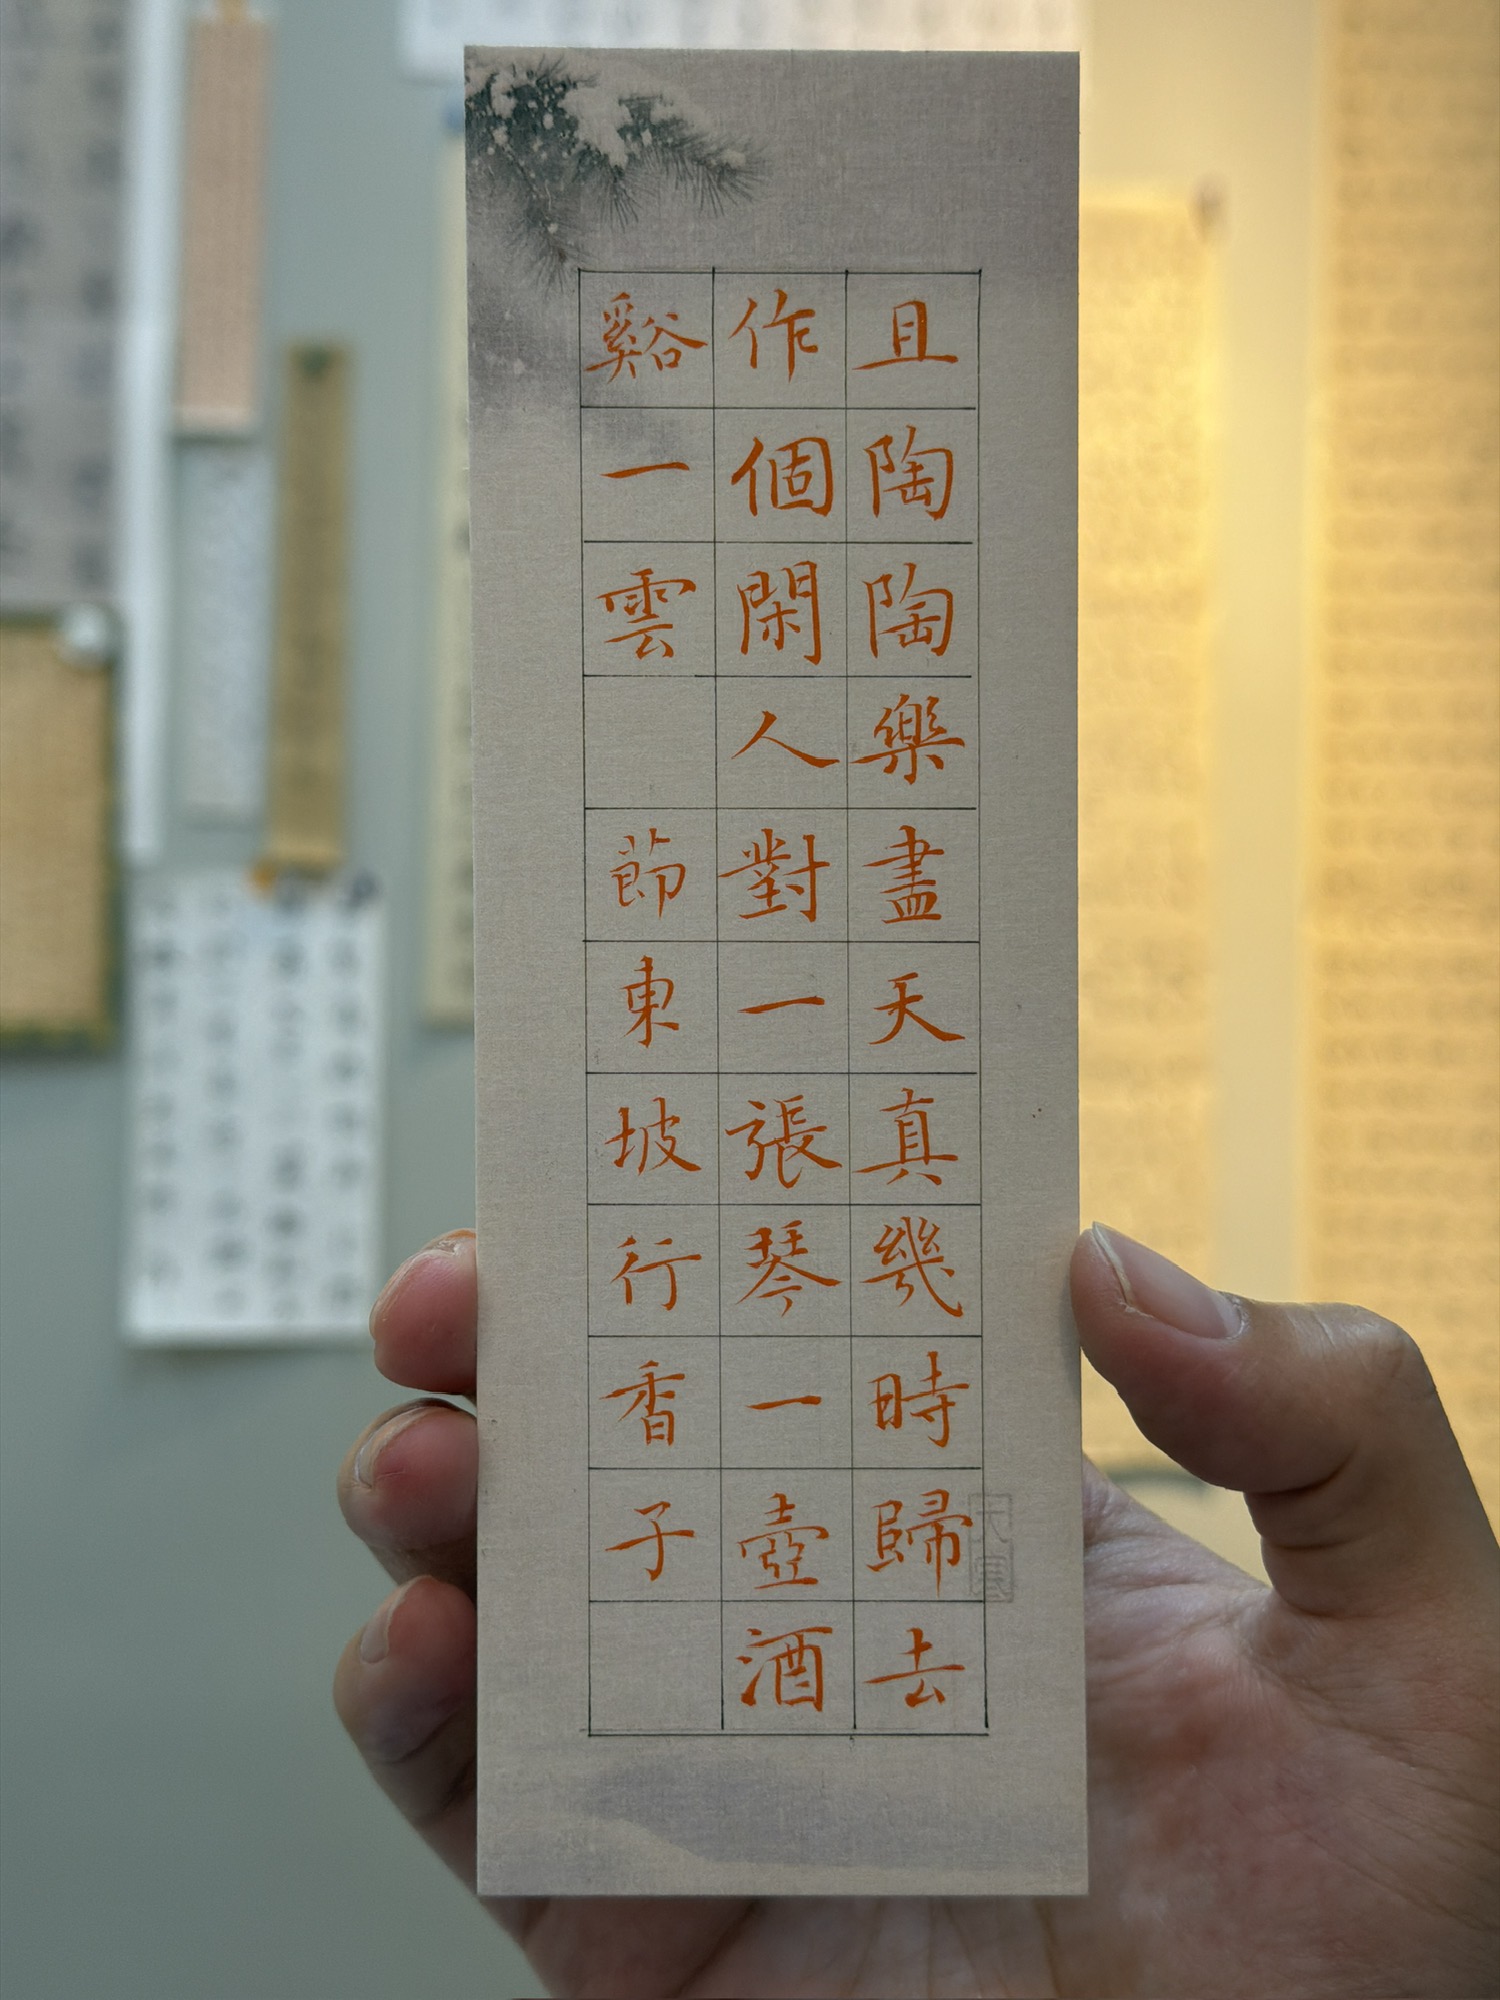 且陶陶樂盡天真幾時歸去
作個閑人對一張琴一壺酒
谿一雲 節東坡行香子